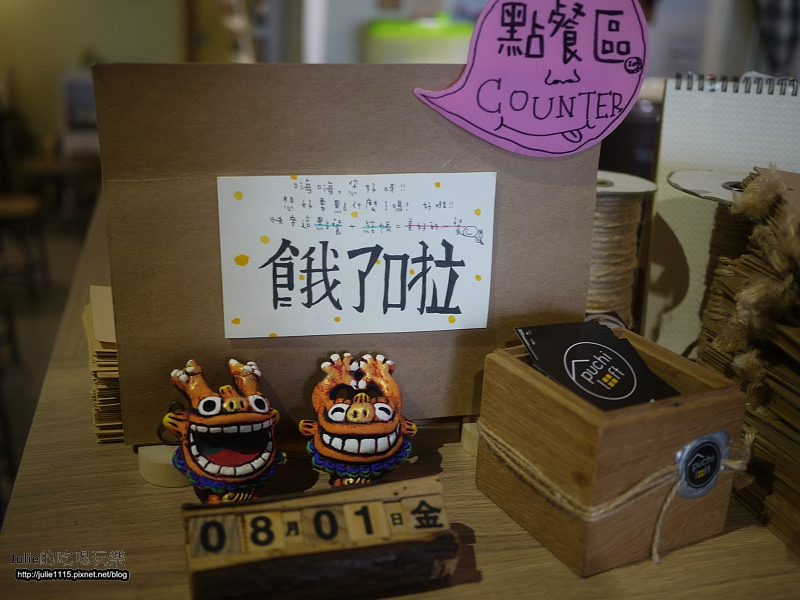 點餐區
COUNTER
嗨嗨,您好呀!!
想好要點什麼了嗎? 好啦!!
點餐 + 結帳 = 美好的一刻
餓了啦
puchi
loft
puchi
loft
08月01日金
Julie的吃喝玩樂
http://julie1115.pixnet.net/blog